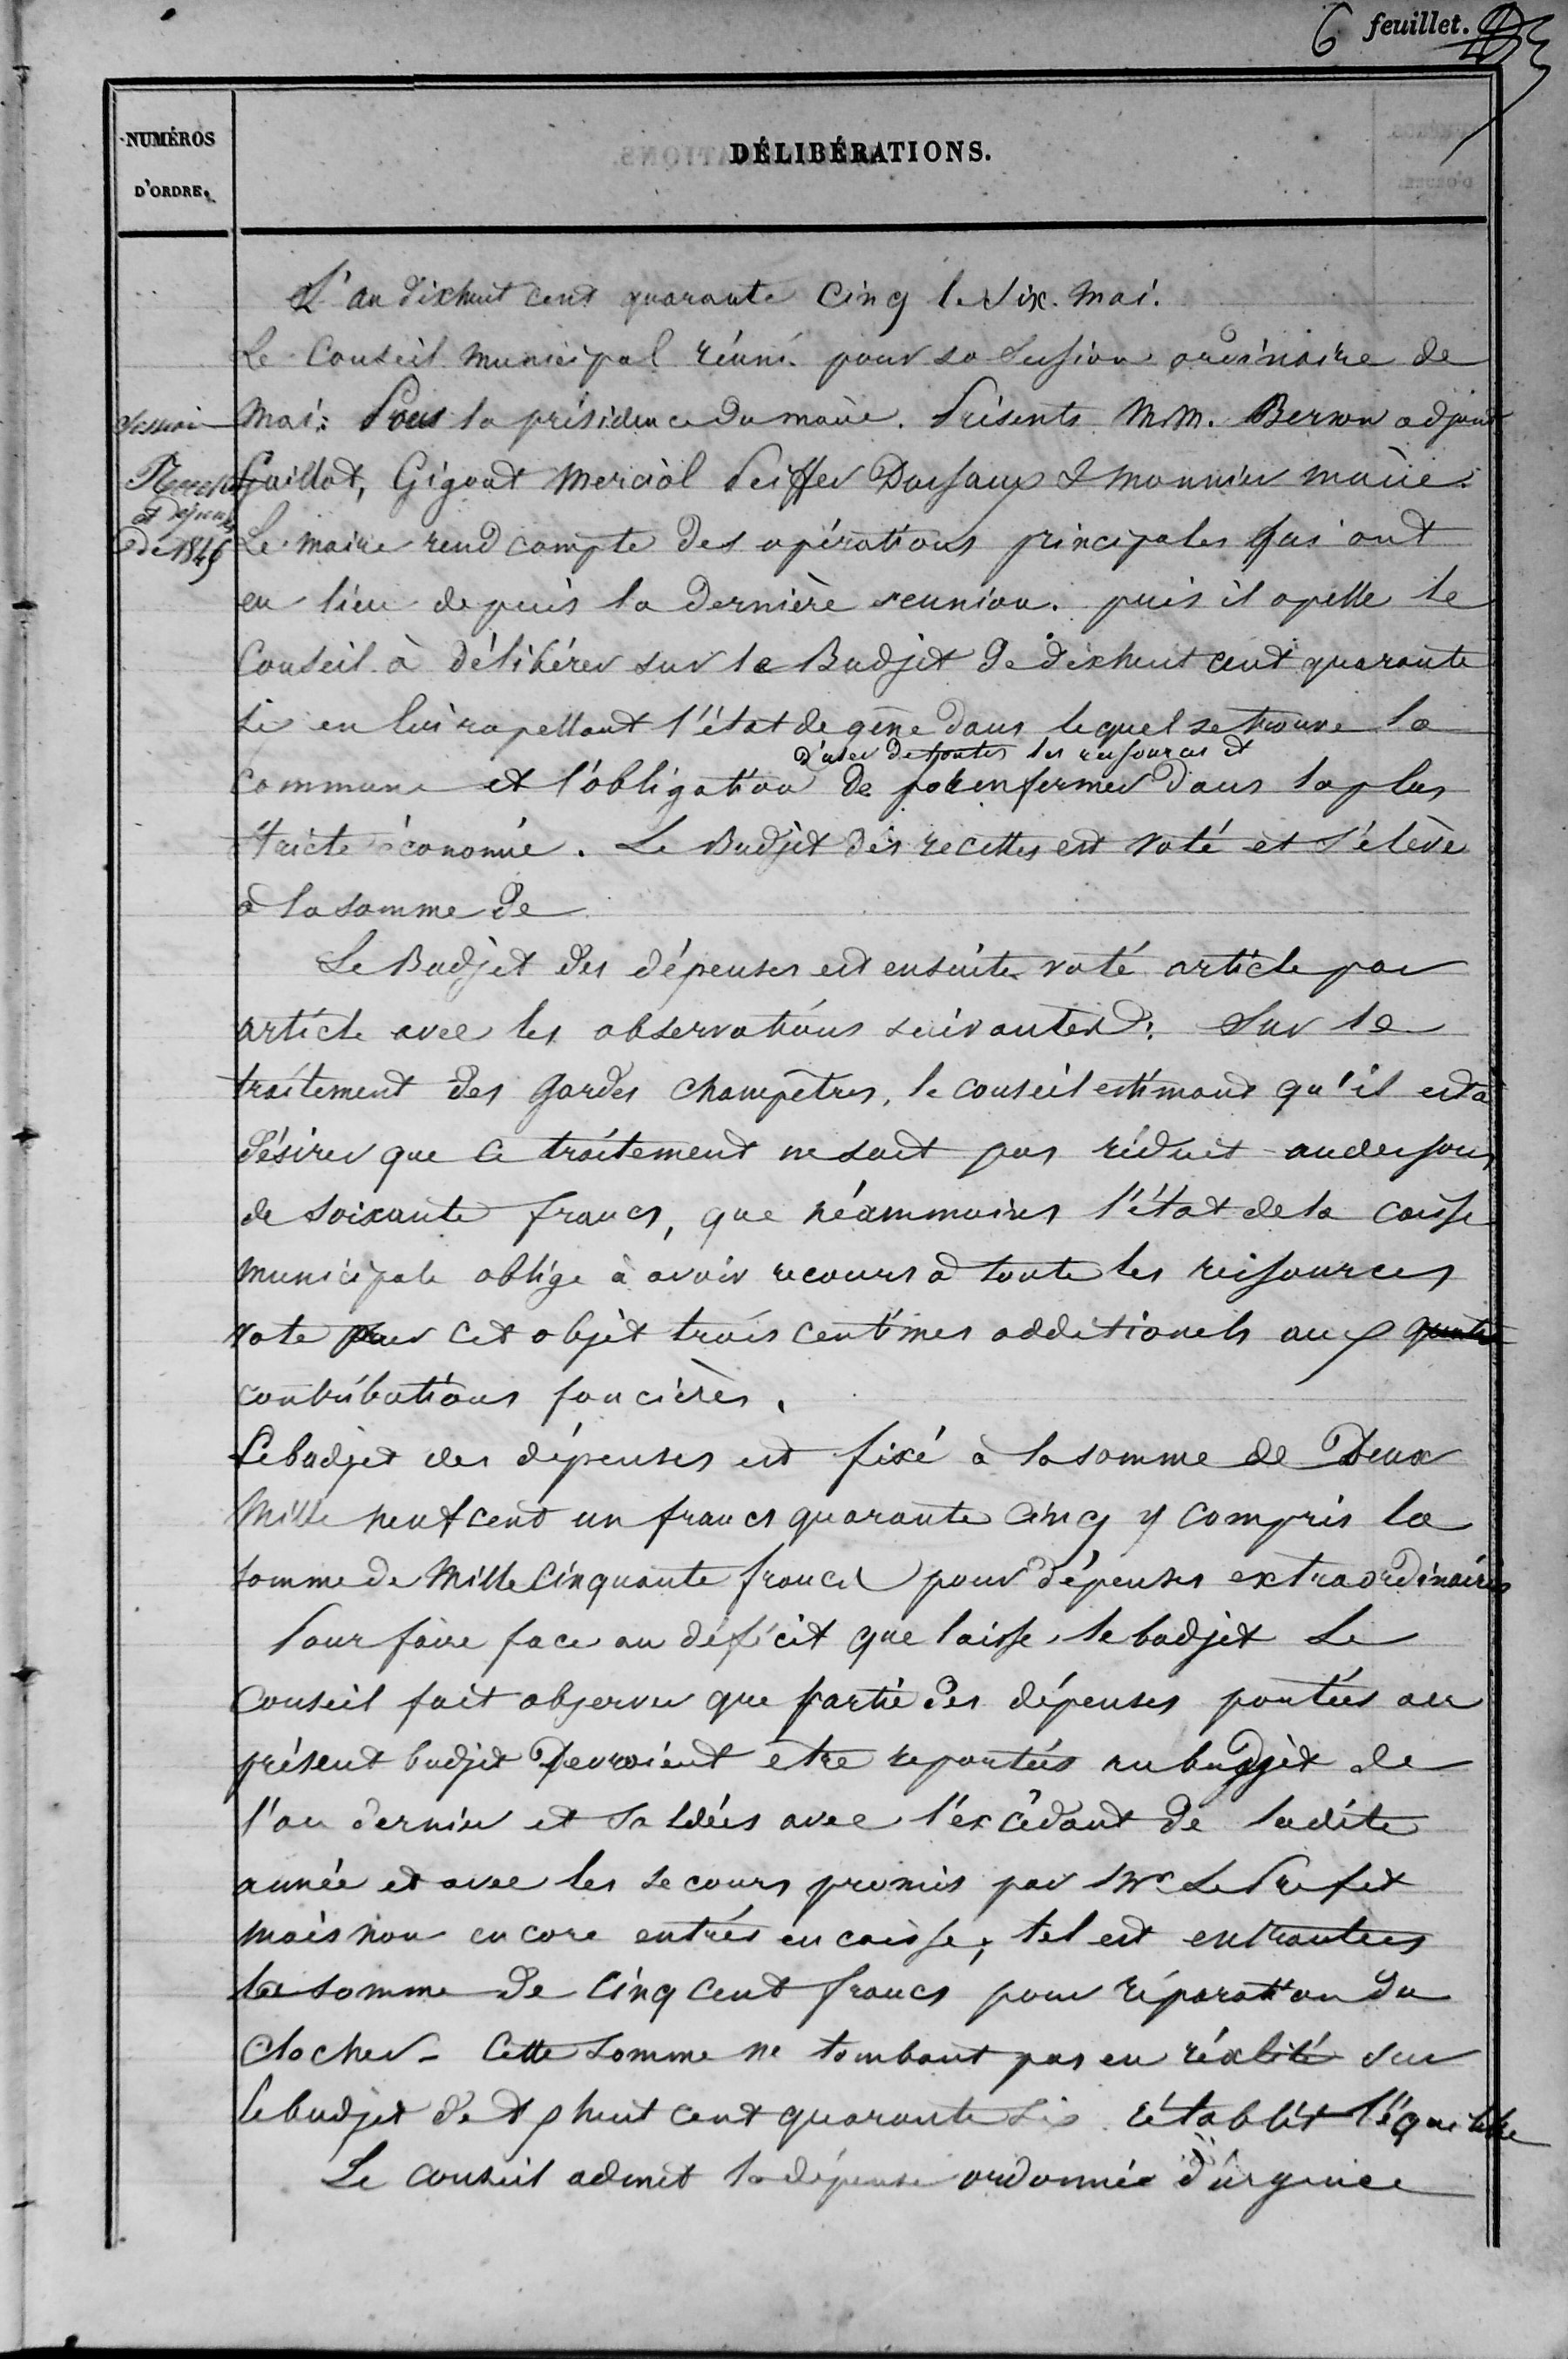 6 feuillet.
NUMÉROS
D'ORDRE.
DÉLIBÉRATIONS.
L'an dixhuit cent quarante cinq le six mai.
Le Conseil municipal réuni pour sa session ordinaire de
mai: sous la présidence du maire. Présents M.M. Berson adjoint
Guillot, Gigout Mercial Peiffer & Monnier maire.
de 1846
Le maire rend compte des opérations principales qui ont
eu lieu depuis la dernière reunion. puis il apelle le
Conseil à délibérer sur le Budjet de dixhuit cent quarante
six en lui rapellant l'état de gêne dans lequel se trouve la
d'user de toutes les ressources et
commune et l'obligation de renfermer dans la plus
stricte économie. Le Budjet des recettes est voté et s'élève
à la somme de
Le Budjet des dépenses est ensuite voté article par
article avec les observations suivantes: Sur le
traitement des gardes champêtres, le conseil estimant qu'il est à
désirer que ce traitement ne soit pas réduit audessous
de soixante francs, que néammoins l'état de la caisse
municipale oblige à avoir recours à toute les ressources
vote pour cet objet trois centimes additionels aux
contributions foncières.
Le budjet des dépenses est fixé à la somme de Deux
Mille neuf cent un francs quarante cinq y compris la
somme de Mille cinquante francs pour dépenses extraordinaires
Pour faire face au déficit que laisse le budjet Le
Conseil fait observer que partie des dépenses portées au
présent budjet devroient etre reportées au budjet de
l'an dernier et soldées avec l'excédant de ladite
année et avec les secours promis par Mr Le Prefet
mais non encore entrés en caisse; tel est
la somme de Cinq cent francs pour réparation du
clocher - Cette somme ne tombant pas en réalité sur
le budjet de dixhuit cent quarante six rétablit l'équilibre
Le conseil admet la dépense ordonnée d'urgence